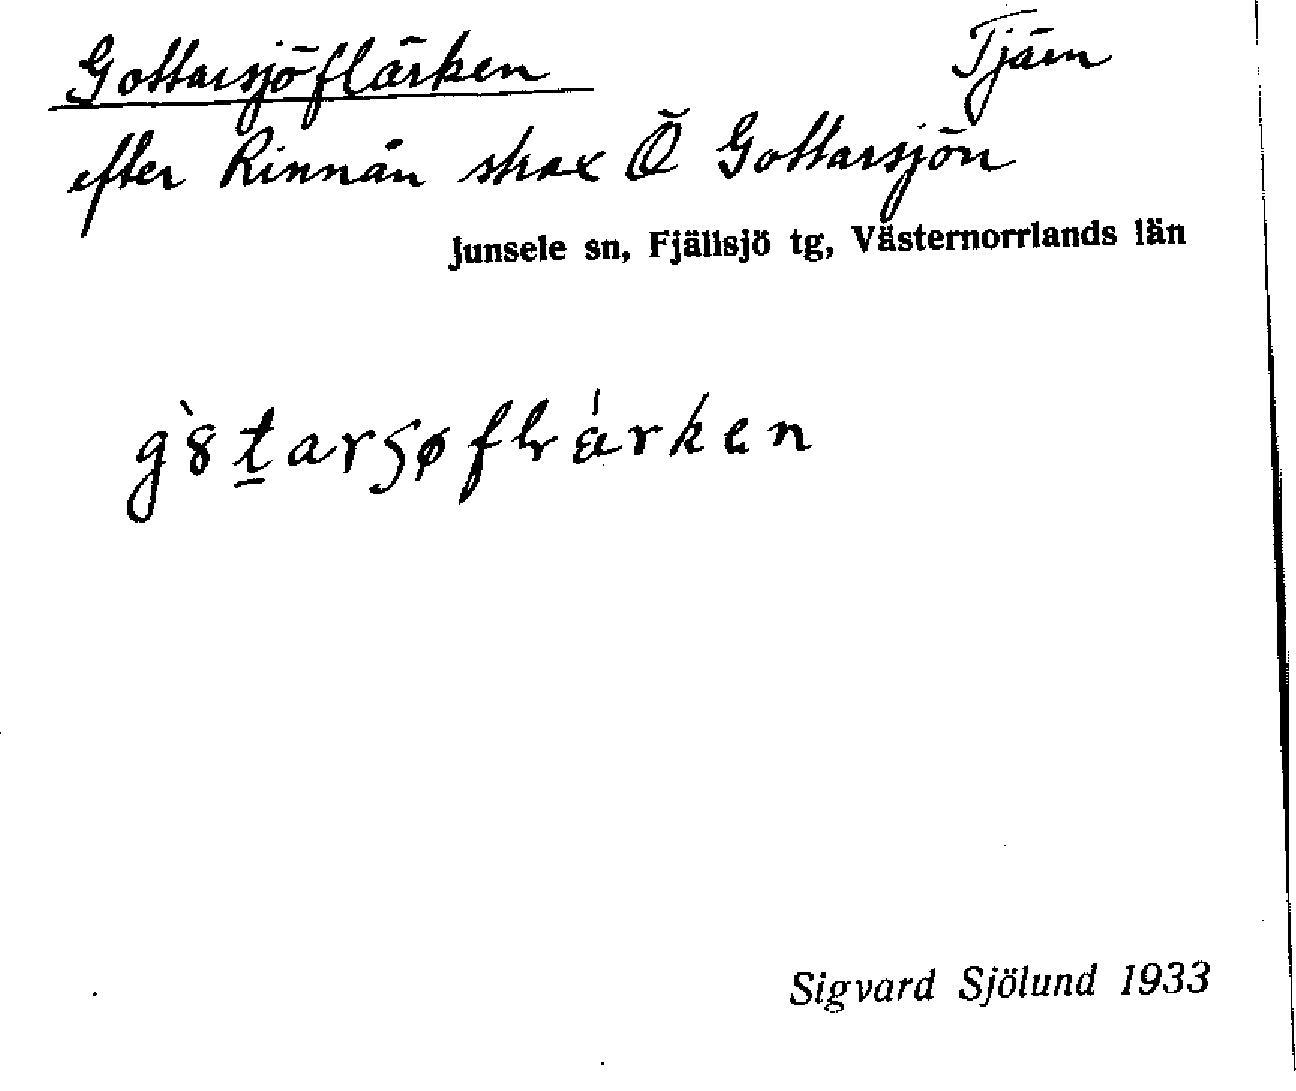 Gottarsjöflärken Tjärn
efter Rinnån strax Ö Gottarsjön
Junsele sn, Fjällsjö tg, Västernorrlands län
Sigvard Sjölund 1933